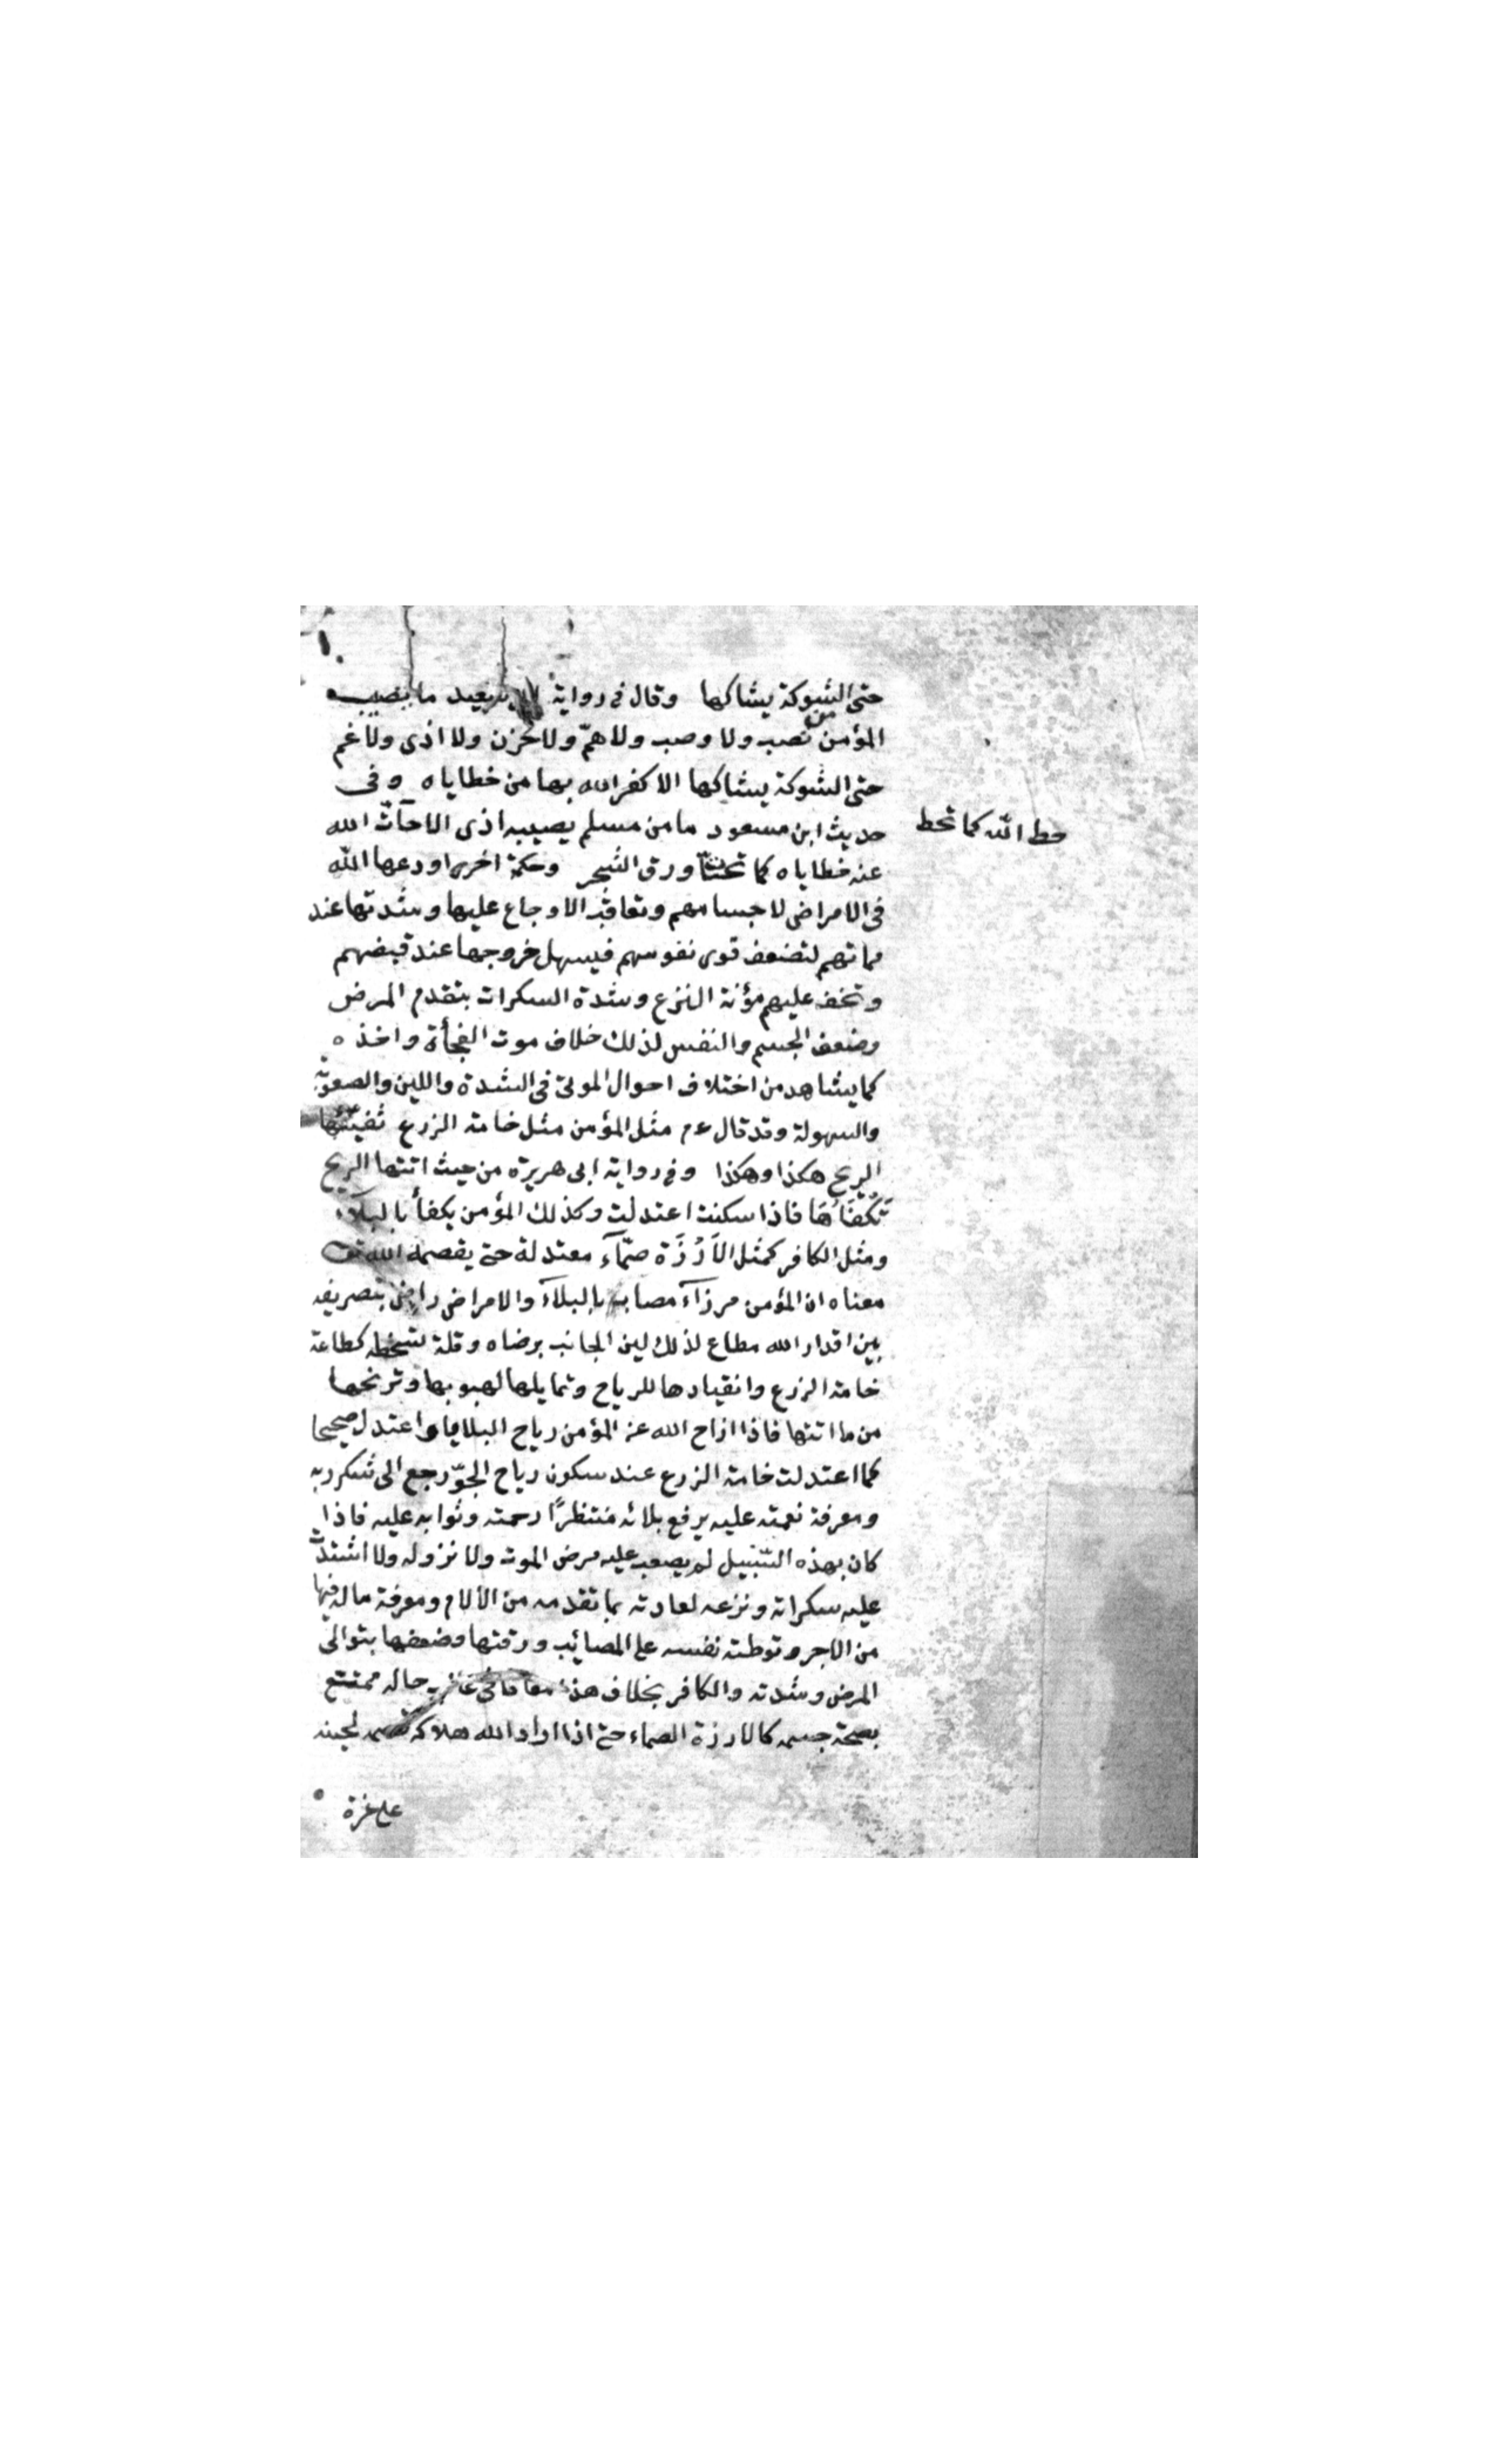 حتى الشوكة يشاكها وقال فى رواية سعيد ما يصيب
المؤمن من نصب ولا وصب ولا همّ ولا حزن ولا اذى ولا غم
حتى الشوكة يشاكها الا كفر الله بها من خطاياه وفى
حديث ابن مسعود ما من مسلم يصيبه اذى الا حاتّ الله
حط الله كما تحط
عنه خطاياه كما تحتّ ورق الشجر وحكمة اخرى اودعها الله
فى الامراض لاجسامهم وتعاقب الاوجاع عليها وشدتها عند
مماتهم لتضعف قوى نفوسهم فيسهل خروجها عند قبضهم
وتخف عليهم مؤنة النزع وشدة السكرات بتقدم المرض
وضعف الجسم والنفس لذلك خلاف موت الفجأة واخذه
كما يشاهد من اختلاف احوال الموتى فى الشدة واللين والصعوبة
والسهولة وقد قال عم مثل المؤمن مثل خامة الزرع تُفيّئها
الريح هكذا وهكذا وفى رواية ابى هريرة من حيث اتتها الريح
تَكْفَأُهَا فاذا سكنت اعتدلت وكذلك المؤمن يكفأ بالبلآء
ومثل الكافر كمثل الاَرُزَة صمّآء معتدلة حتى يقصمه الله
معناه ان المؤمن مرزآء مصاب بالبلآء والامراض راض بتصريفه
بين اقدار الله مطاع لذلك لين الجانب برضاه وقلة سخطه كطاعة
خامة الزرع وانقيادها للرياح وتمايلها لهبوبها وترنحها
من ما اتتها فاذا ازاح الله عن المؤمن رياح البلايا واعتدل صحيحا
كما اعتدلت خامة الزرع عند سكون رياح الجوّ رجع الى شكر ربه
ومعرفة نعمته عليه برفع بلائه منتظرًا رحمته وثوابه عليه فاذا
كان بهذه السّبيل لم يصعب عليه مرض الموت ولا نزوله ولا اشتدّت
عليه سكراته ونزعه لعادته بما تقدمه من الآلام ومعرفة ماله فيها
من الاجر وتوطنه نفسه على المصائب ورقتها وضعفها بتوالى
المرض وشدته والكافر بخلاف هذا معافا فى غالب حاله ممتتع
بصحة جسمه كالارزة الصماء حتى اذا اراد الله هلاكه قصمه لحينه
على غرة